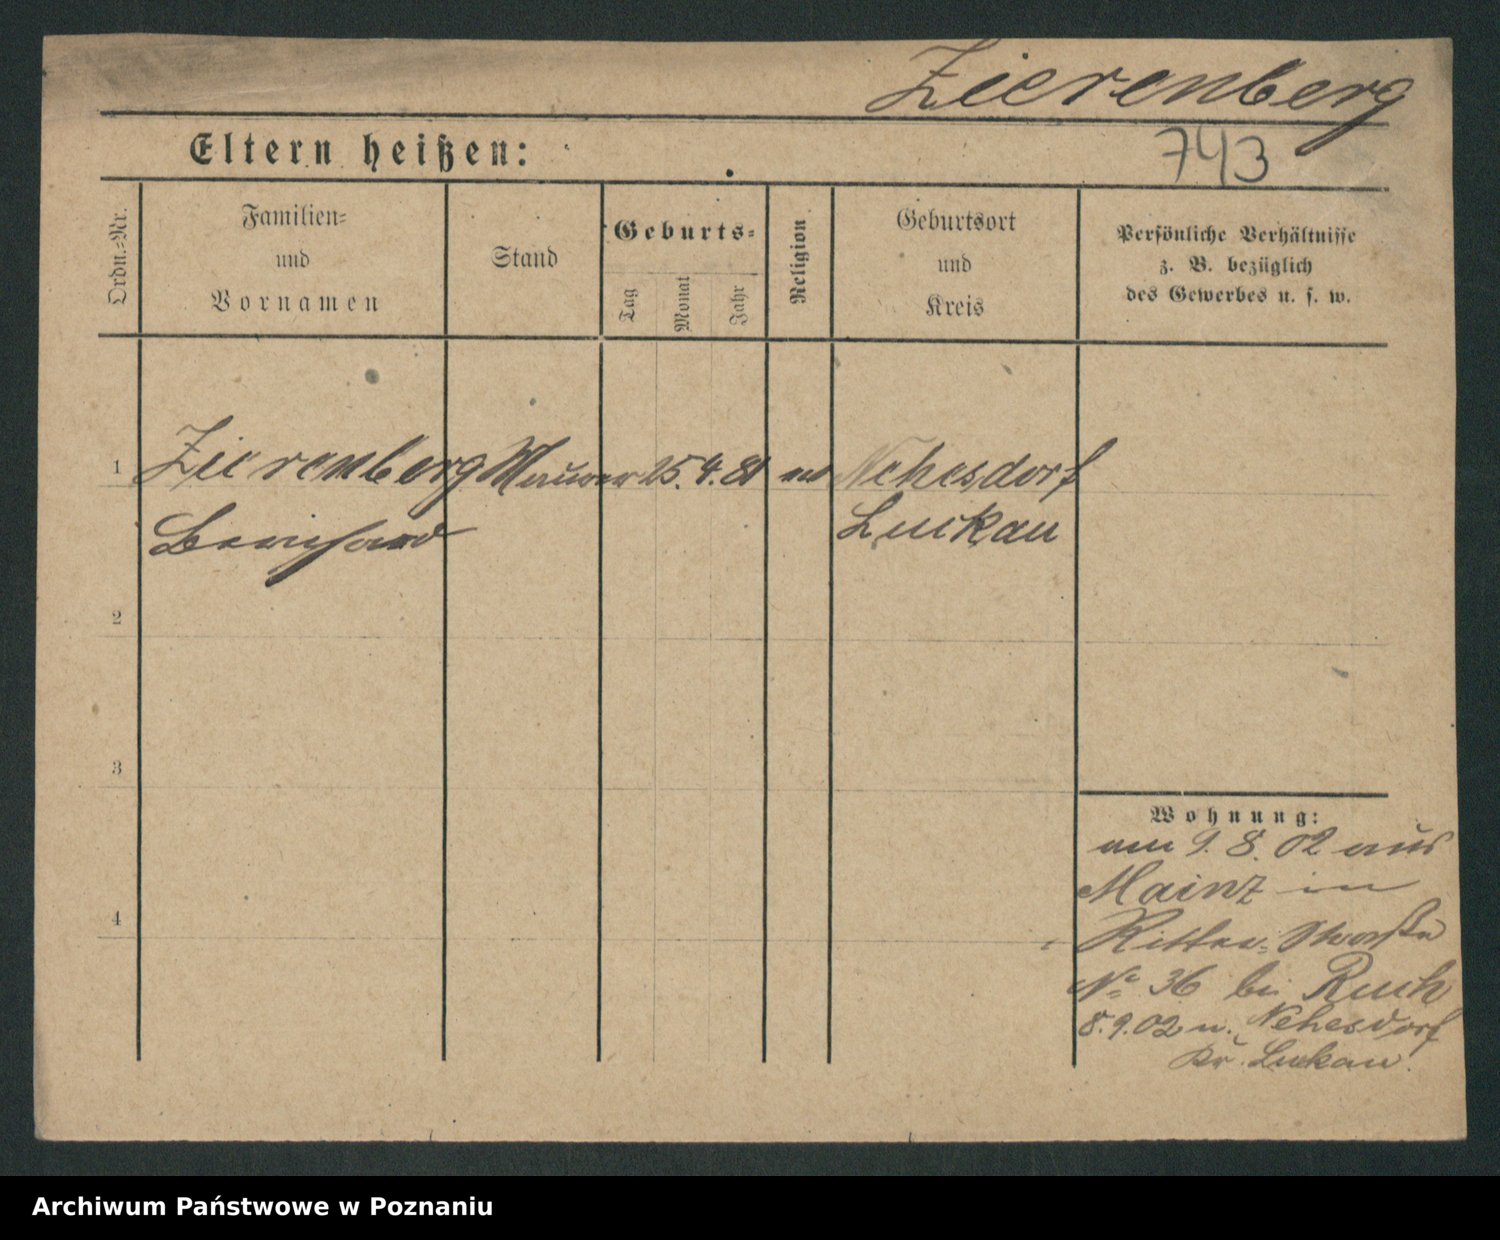 Zierenberg
743
Eltern heißen:
Ordn.=Nr.
Familien=
und
Vornamen
Stand
Geburts=
Tag
Monat
Jahr
Religion
Geburtsort
und
Kreis
Persönliche Verhältnisse
z. B. bezüglich
des Gewerbes u. s. w.
1 Zierenberg Maurer 25. 4. 81 Nehesdorf
Bernhard Luckau
2
3
4
Wohnung:
am 9. 8. 02 aus
Mainz in
Ritter=Straße
No 36 bei Ruch
8. 9. 02 n. Nehesdorf
Kr. Luckau.
Archiwum Państwowe w Poznaniu